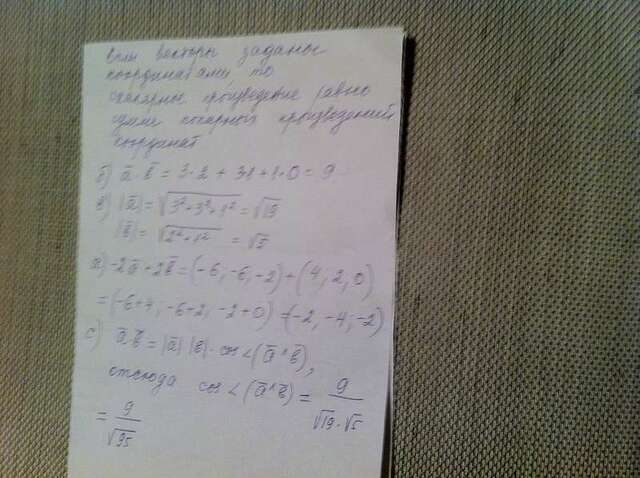 если векторы заданы
координатами, то
скалярное произведение равно
сумме попарных произведений
координат
б) a̅·b̅ = 3·2 + 3·1 + 1·0 = 9
в) |a̅| = √(3²+3²+1²) = √19
|b̅| = √(2²+1²) = √5
а) -2a̅ + 2b̅ = (-6, -6, -2) + (4, 2, 0)
= (-6+4, -6+2, -2+0) = (-2, -4, -2)
с) a̅·b̅ = |a̅| |b̅| · cos∠(a̅^b̅),
отсюда cos∠(a̅^b̅) = 9/(√19·√5)
= 9/√95